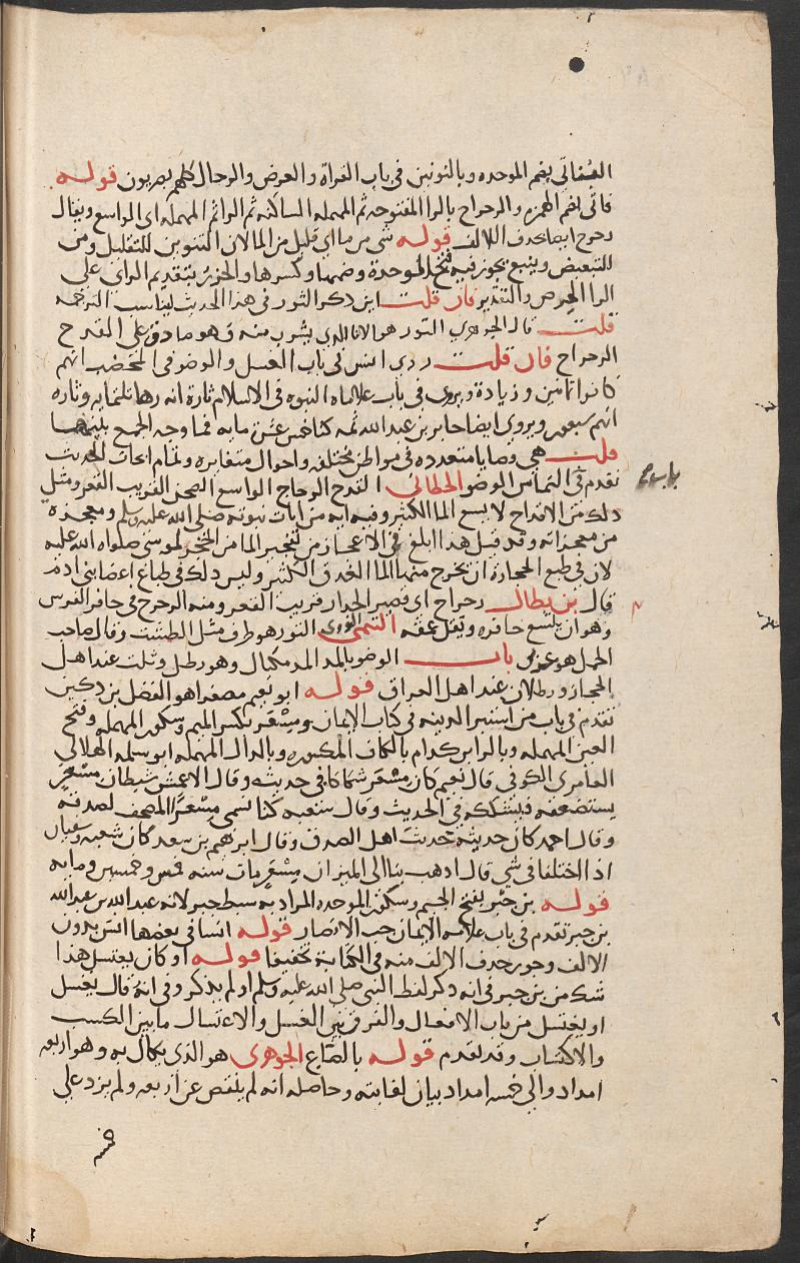 البناني بضم الموحدة وبالنونين في باب القراة والعرض والرجال كلهم بصريون قوله
فاتى بضم الهمزه والرحراح بالرا المفتوحه ثم المهمله الساكنه ثم الرا ثم المهمله اي الواسع ويقال
رحرح ايضا بحذف الالف قوله شي من ما اي قليل من الما لان التنوين للتقليل ومن
للتبعيض وينبع يجوز فيه فتح الموحدة وضمها وكسرها والحزر بتقديم الزاي علي
الرا الخرص والتقدير فان قلت اين ذكر التور في هذا الحديث ليناسب الترجمه
قلت قال الجوهري التور هو الانا الذي يشرب منه فهو صادق علي القدح
الرحراح فان قلت روي انس في باب الغسل والوضو في المخضب انهم
كانوا ثمانين وزيادة ويروي في باب علامات النبوه في الاسلام تارة انه زها ثلثمايه وتاره
انهم سبعون ويروي ايضا جابر بن عبد الله ثمه كنا خمس عشرة مايه فما وجه الجمع بينهما
قلت هي وصايا متعدده في مواطن مختلفه واحوال متغايره وتمام ابحاث الحديث
تقدم في التماس الوضو الخطابي القدح الرحراح الواسع الصحن القريب القعر ومثل
ذلك من الاقداح لا يسع الما الكثير وفيه ايه من ايات نبوته صلي الله عليه وسلم ومعجزه
من معجزاته وقد قيل هذا ابلغ في الاعجاز من تفجير الما من الحجر لموسي صلوات الله عليه
لان في طبع الحجارة ان يخرج منها الما الغدق الكثير وليس ذلك في طباع اعضا بني ادم
قال بن بطال رحراح اي قصير الجدار قريب القعر ومنه الرحرح في حافر الفرس
وهو ان يتسع حافره ويقل عمقه التيمي التور هو ظرف مثل الطشت وقال صاحب
المجمل هو عربي باب الوضو بالمد المد مكيال وهو رطل وثلث عند اهل
الحجاز ورطلان عند اهل العراق قوله ابو نعيم مصغرا هو الفضل بن دكين
تقدم في باب من استبرا لدينه في كتاب الايمان ومسعر بكسر الميم وسكون المهمله وفتح
العين المهمله وبالرا بن كدام بالكاف المكسوره وبالدال المهمله ابو سلمه الهلالي
العامري الكوفي قال نعيم كان مسعر شكاكا في حديثه وقال الاعمش شيطان مسعر
يستضعفه فيشككه في الحديث وقال شعبه كنا نسمي مسعرا المصحف لصدقه
وقال احمد كان حديثه حديث اهل الصدق وقال ابرهيم بن سعد كان شعبه وسفيان
اذا اختلفا في شي قال اذهب بنا الي الميزان مسعر مات سنه خمس وخمسين ومايه
قوله بن جبر بفتح الجيم وسكون الموحده المراد به سبط جبر لانه عبد الله بن عبد الله
بن جبر تقدم في باب علامه الايمان حب الانصار قوله انسا في بعضها انس بدون
الالف وجوز حذف الالف منه في الكتابة تخفيفا قوله او كان يغتسل هذا
شك من بن جبر في انه ذكر لفظ النبي صلي الله عليه وسلم او لم يذكر وفي انه قال يغسل
او يغتسل من باب الافتعال والفرق بين الغسل والاغتسال ما بين الكسب
والاكتساب وقد تقدم قوله بالصاع الجوهري هو الذي يكال به وهو اربعه
امداد والي خمسه امداد بيان لغايته وحاصله انه لم ينقص عن اربعه ولم يزد علي
خمسه